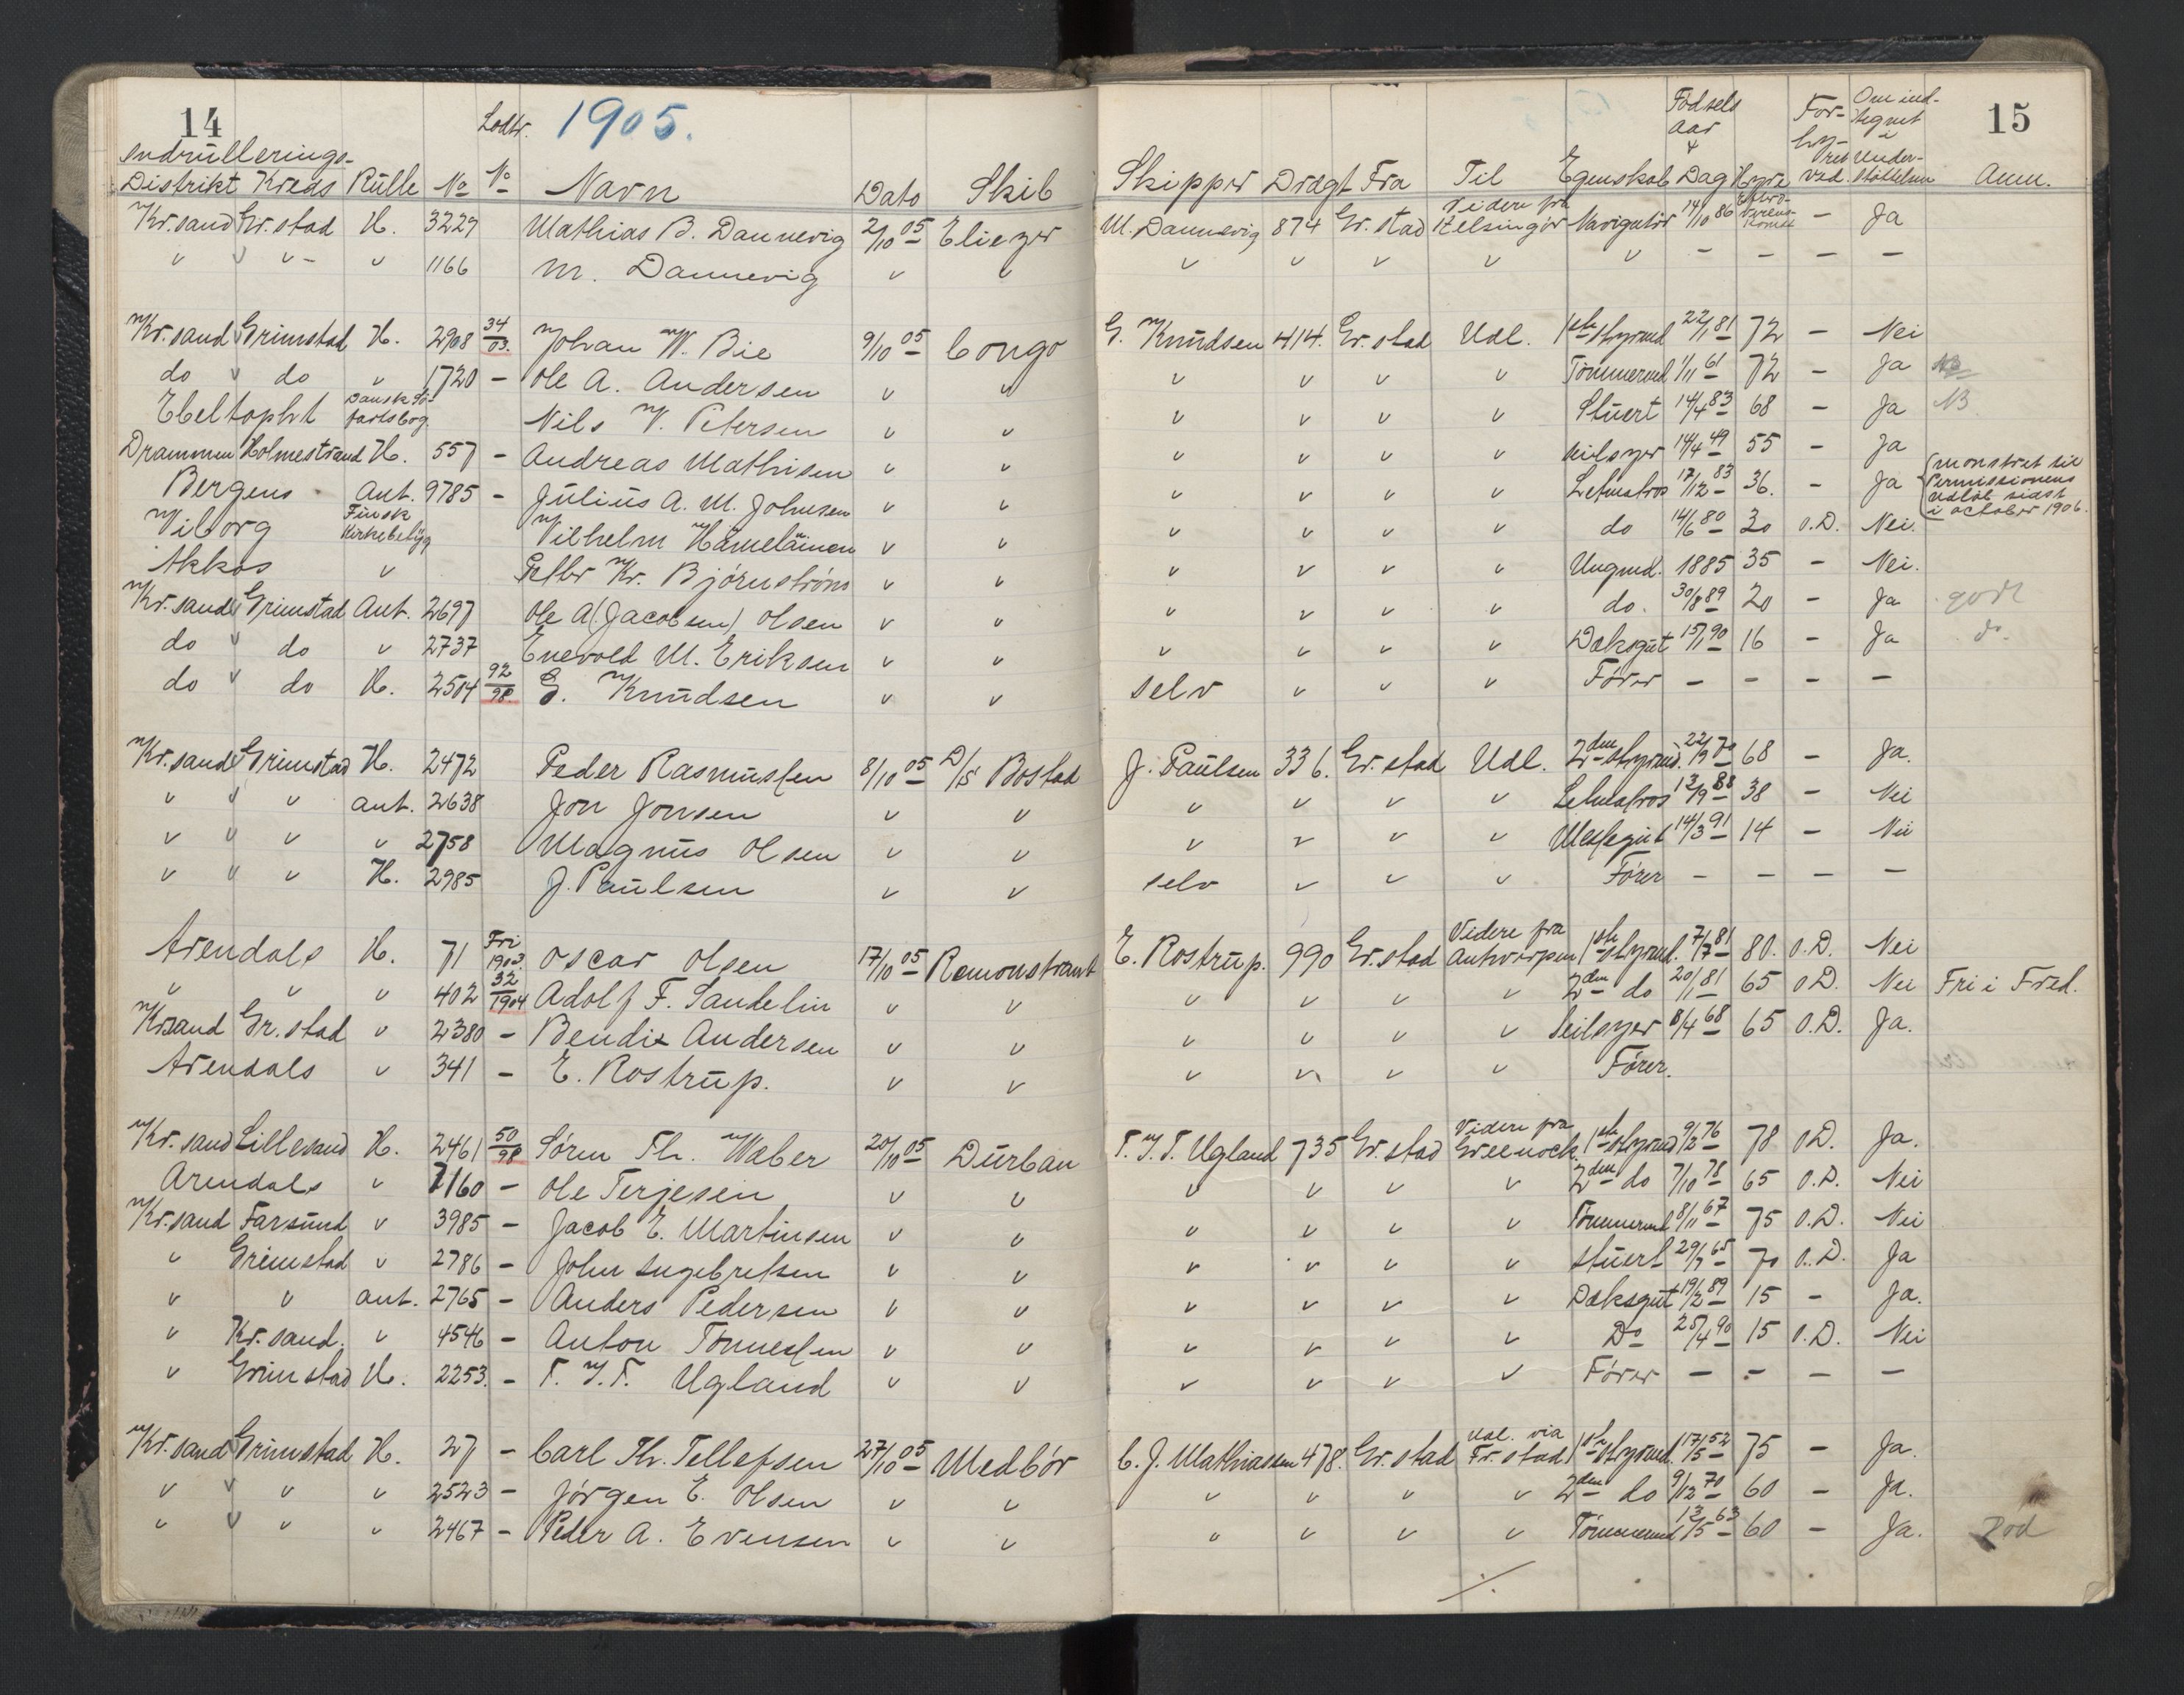 14 Lodtr. 1905.
Indrullerings-
Distrikt Kreds Rulle No No Navn Dato Skib
Kr.sand Gr.stad H. 3227 Mathias B. Dannevig 2/10 05 Eliezer
v v v - v 1166 M. Dannevig v v
Kr.sand Grimstad H. 2908 34/03. Johan W. Bie 9/10 05 Congo
do v do v 1720 - Ole A. Andersen v v
Ebeltopht Dansk Sö-fartsbog. Nils V. Petersen v v
Drammen Holmestrand H. 557 - Andreas Mathisen v v
Bergens Ant. 9785 - Julius A. M. Johnsen v v
Viborg Finsk Kirkebetyg Vilhelm Hämeläinen v v
Akkas v Petter Kr. Björnström v v
Kr.sand Grimstad Ant. 2697 Ole A (Jacobsen) Olsen v v
do v do v 2737 Enevold M. Eriksen v v
do v do H. 2504 92/98. G. Knudsen v v
Kr.sand v Grimstad H. 2472 Peder Rasmussen 8/10 05 D/S Bostad
v v v ant. 2638 Jon Jonsen v v
v v v v 2758 Magnus Olsen v v
v v v H. 2985 J. Paulsen v v
Arendals H. 71 Fri 1903. Oscar Olsen 17/10 05 Remonstrant
v v v 402 32/1904 Adolf F. Sandelin v v
Krsand Gr.stad v 2380 - Bendix Andersen v v
Arendals v 341 - E. Rostrup. v v
Kr.sand Lillesand H. 2461 50/98 Sören Th. Weber 20/10 05 Durban
Arendals v 7160 - Ole Terjesen v v
Kr.sand Farsund v 3985 - Jacob E. Martinsen v v
v Grimstad v 2786 - John Ingebretsen v v
v v ant. 2765 - Anders Pedersen v v
v Kr.sand. v 4546 - Anton Tönnessen v v
v Grimstad H. 2253. - T. T. Ugland v v
Kr.sand v Grimstad H. 27 - Carl Th. Tellefsen 27/10 05 Medbör
v v v v 2523 - Jörgen E. Olsen v v
v v v v 2467 - Peder A. Evensen v v
15
Skipper Drægt Fra Til Egenskab Födsels Aar & Dag Hyre For-hyret ved. Om ind-tegnet i Under-støttelsen Anm.
M. Dannevig 874 Gr.stad Videre fra Helsingör Navigatör 14/10 86 - Ja
v v v v v - - - -
G. Knudsen 414. Gr.stad Udl. 1ste Styrmd 22/1 81 72 - Nei
v v v v Tömmermd 1/11 61 72 - Ja NB
v v v v Stuert 14/4 83 68 - Ja NB.
v v v v Seilsyer 14/4 49 55 - Ja
v v v v Letmatros 17/12 83 36. - Ja (mönstret til Permissionens udløb sidst i october 1906.
v v v v do 14/6 80 30 O.D. Nei.
v v v v Ungmd. 1885 35 - Nei.
v v v v do. 30/8 89 20 - Ja godt
v v v v Dæksgut 15/1 90 16 - Ja do.
selv v v v Förer - - - -
J. Paulsen 336. Gr.stad Udl. 2den Styrmd. 22/9 70 68 - Ja.
v v v v Letmatros 12/9 88 38 - Nei
v v v v Messegut 14/3 91 14 - Nei
selv v v v Förer - - - -
E. Rostrup. 990 Gr.stad Videre fra Antverpen 1ste Styrmd. 7/7 81 80. O.D. Nei
v v v v 2den do 20/11 81 65 O.D. Nei Fri i Fred.
v v v v Seilsyer 8/4 68 65 O.D. Ja.
v v v v Förer.
T. T. Ugland 735 Gr.stad Videre fra Greenock. 1ste Styrmd 9/2 76 78 O.D. Ja.
v v v v 2den do 7/10 78 65 O.D. Nei
v v v v Tömmermd 8/11 67 75 O.D. Nei
v v v v Stuert 29/7 65 70 O.D. Ja
v v v v Dæksgut 19/2 89 15 - Ja.
v v v v Do 25/4 90 15 O.D. Nei
v v v v Förer - - - -
C. J. Mathiassen 478. Gr.stad Udl. via Fr.stad 1ste Styrmd. 17/5 52 75 - Ja.
v v v v 2den do 9/12 70 60 - Ja.
v v v v Tömmermd 13/5 63 60 - Ja. Död
./.